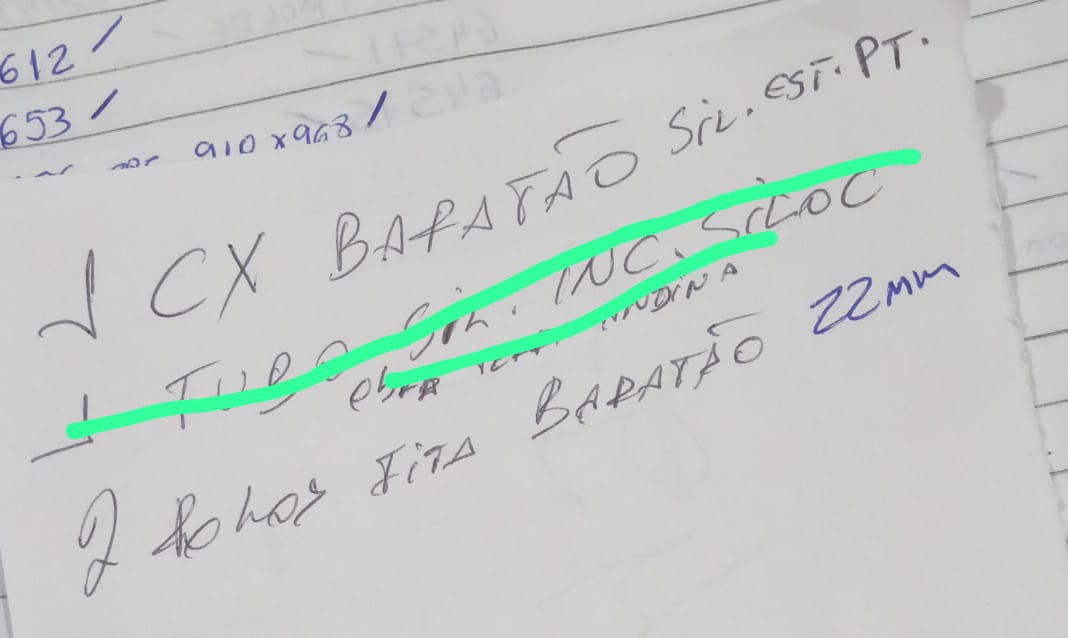 612 /
653 /
910 x 968 /
1 CX BARATÃO SiL. EST. PT.
1 TUBO SiL. INC. SiLOC
OBRA ANDINA
2 Rolos FiTA BARATÃO 22mm